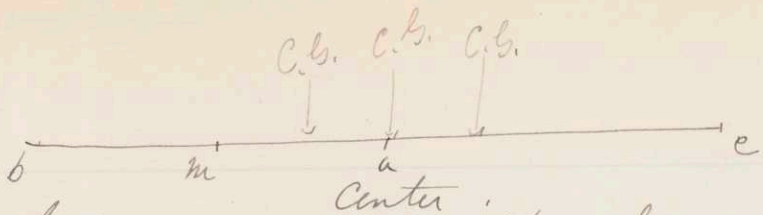 C.G. C.G. C.G.
b m a e
Center.